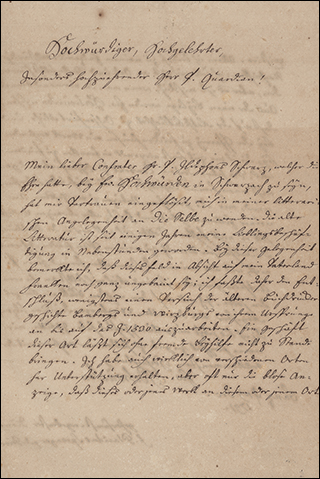 Hochwürdiger, Hochgelehrter,
Insonders hochzuehrender Herr P. Guardian!
Mein lieber Confrater Fr. P. Ildephons Schwarz, welcher die
Ehre hatte, bey Euer Hochwürden in Schwarzach zu seyn,
hat mir Vertrauen eingeflößt mich in einer litterari-
schen Angelegenheit an die Selbe zu wenden. Die alte
Litteratur ist seit einigen Jahren meine Lieblingsbeschäf-
tigung in Nebenstunden geworden. Bey dieser Gelegenheit
bemerkte ich, daß dieses Feld in Absicht auf mein Vaterland
Franken noch ganz ungebaut sey; ich faßte daher den Ent-
schluß, wenigstens einen Versuch der älteren Buchdrucker
geschichte Bambergs und Wirzburgs von ihrem Ursprunge
an bis auf das J. 1500 auszuarbeiten. Ein Geschäft
dieser Art läßt sich ohne fremde Beyhilfe nicht zu Stande
bringen. Ich habe auch wirklich von verschiedenen Orten
her Unterstützung erhalten, aber oft nur die blose An-
zeige, daß dieses oder jenes Werk an diesem oder jenem Ort